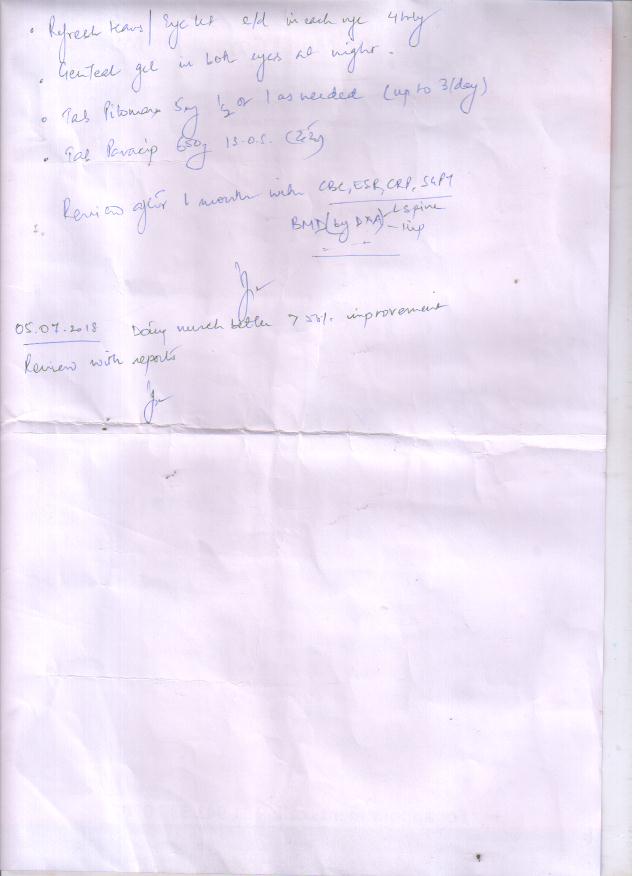 • Refresh tears / Eyelet e/d in each eye 4hrly
• Genteal gel in both eyes at night.
• Tab Pilomax 5mg ½ or 1 as needed (up to 3/day)
• Tab Paracip 650g S.O.S.
Review after 1 month with CBC, ESR, CRP, SGPT
BMD (by DXA) - L Spine
- Hip
05.07.2018 Doing much better > 50% improvement
Review with reports